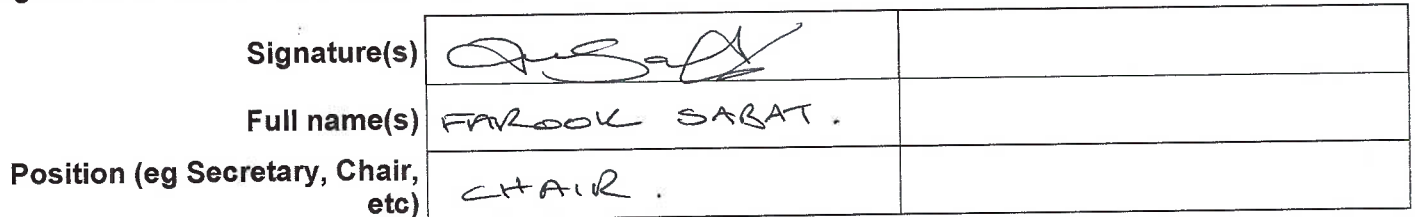 Signature(s)
Full name(s) FAROOK SABAT.
Position (eg Secretary, Chair,
etc) CHAIR.